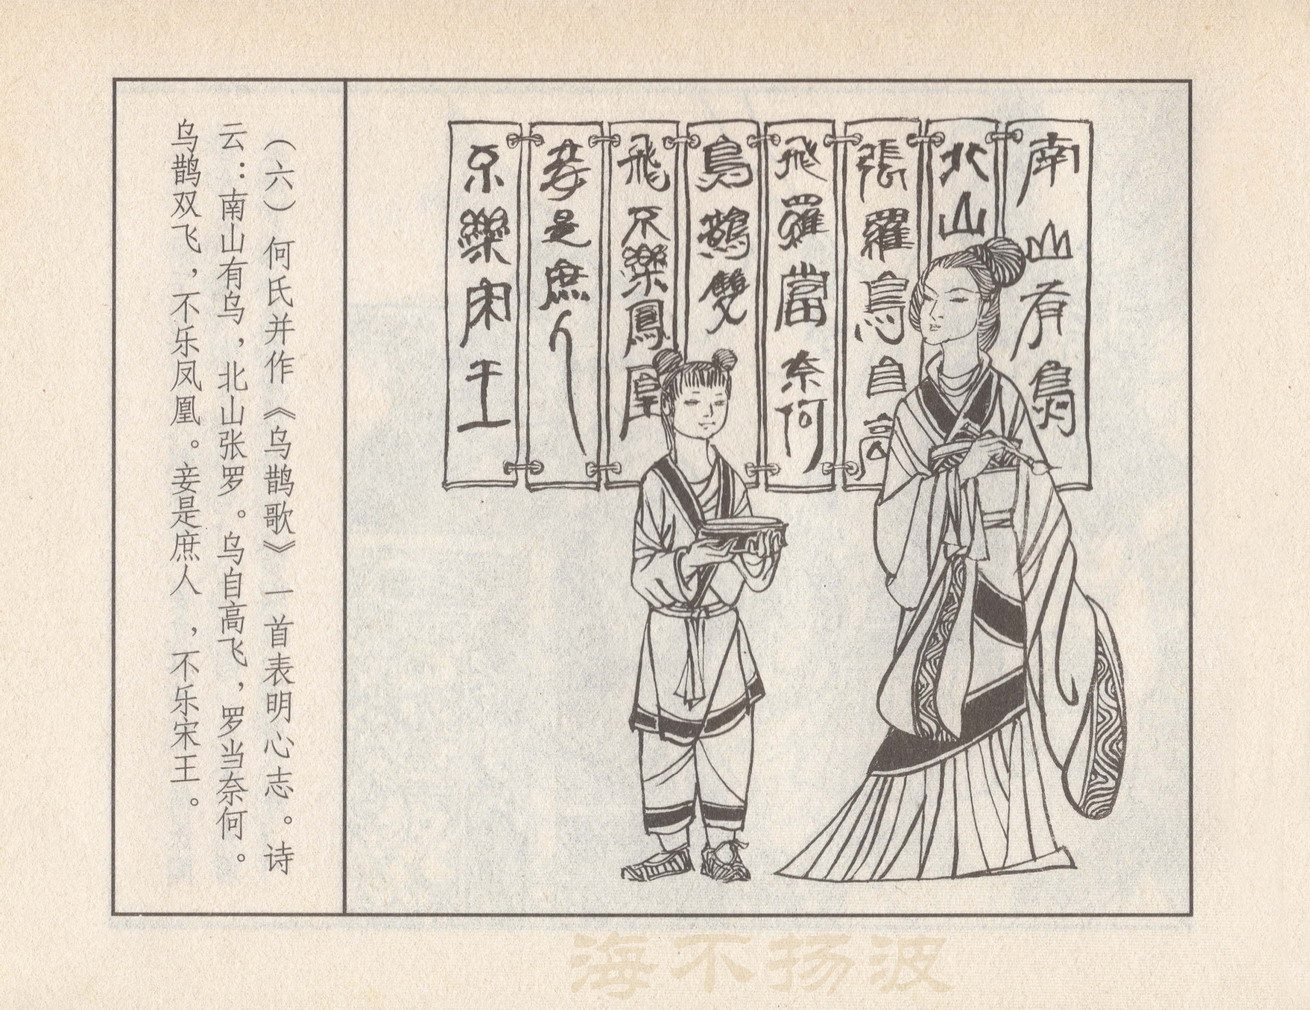 （六）何氏并作《乌鹊歌》一首表明心志。诗
云：南山有乌，北山张罗。乌自高飞，罗当奈何。
乌鹊双飞，不乐凤凰。妾是庶人，不乐宋王。
南山有鳥
北山
張羅鳥自高
飛羅當奈何
鳥鵲雙
飛不樂鳳凰
妾是庶人
不樂宋王
海不扬波